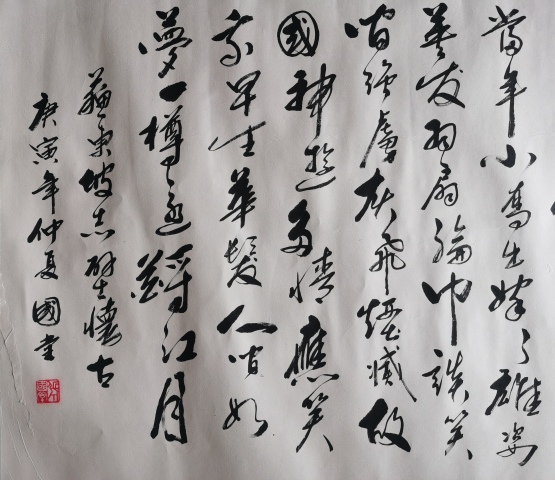 當年小喬出嫁了雄姿
英发羽扇綸巾談笑
间強虜灰飛煙滅故
國神遊多情應笑
我早生華髮人间如
夢一樽還酹江月
蘇東坡赤壁懷古
庚寅年仲夏國